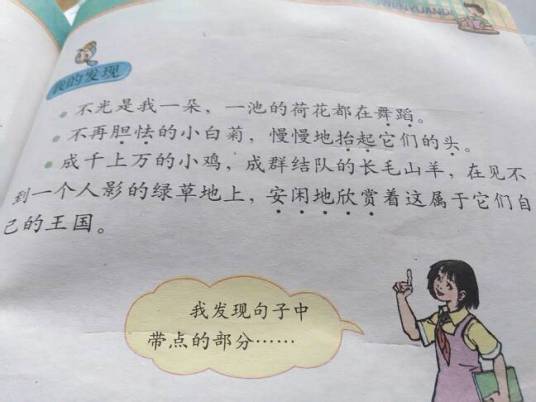 我的发现
不光是我一朵，一池的荷花都在舞蹈。
不再胆怯的小白菊，慢慢地抬起它们的头。
成千上万的小鸡，成群结队的长毛山羊，在见不
到一个人影的绿草地上，安闲地欣赏着这属于它们自
己的王国。
我发现句子中
带点的部分……